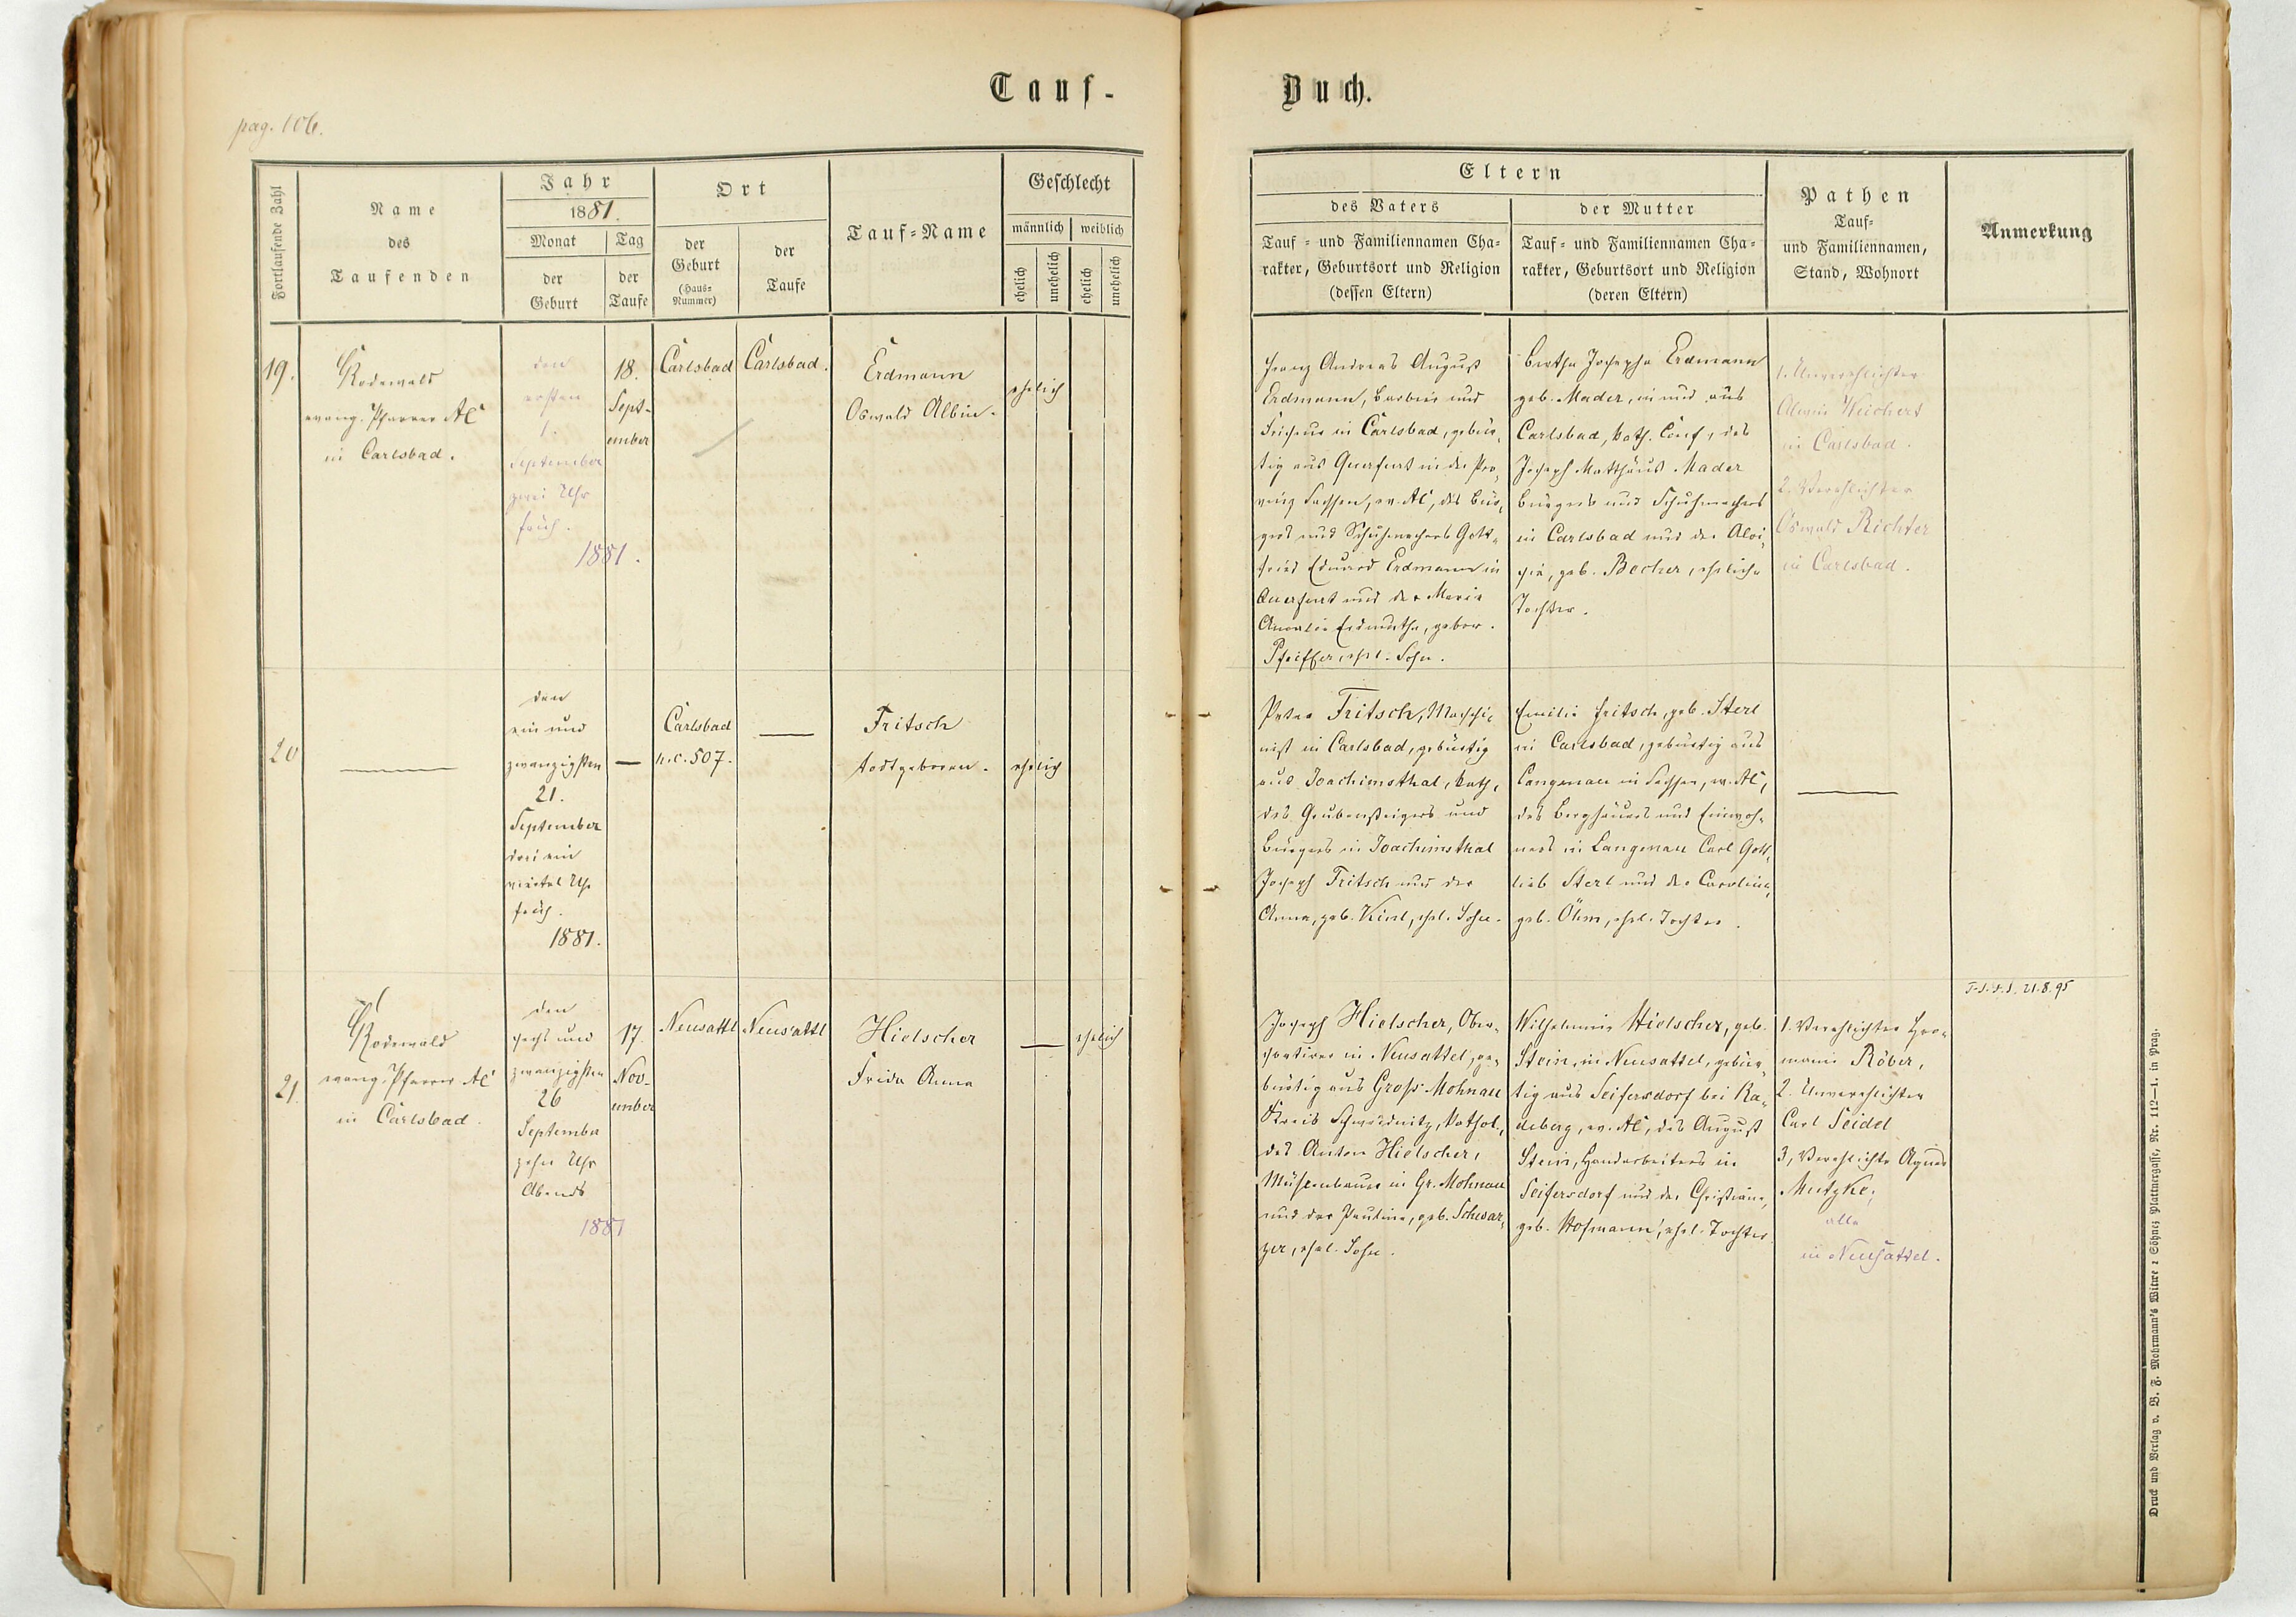 Tauf-
Buch.
pag. 106.
Fortlaufende Zahl
Name
des
Taufenden
Jahr
1881.
Monat
der
Geburt
Tag
der
Taufe
Ort
der
Geburt
(Haus-
Nummer)
der
Taufe
Tauf-Name
Geschlecht
männlich
weiblich
ehelich
unehelich
ehelich
unehelich
Eltern
des Vaters
Tauf- und Familiennamen Cha-
rakter, Geburtsort und Religion
(dessen Eltern)
der Mutter
Tauf- und Familiennamen Cha-
rakter, Geburtsort und Religion
(deren Eltern)
Pathen
Tauf-
und Familiennamen,
Stand, Wohnort
Anmerkung
19.
Rodewald
evang. Pfarrer AC
in Carlsbad.
den
ersten
1.
September
zwei Uhr
früh.
1881.
18.
Sept-
ember
Carlsbad
Carlsbad.
Erdmann
Oswald Albin.
ehelich
Franz Andreas August
Erdmann, Barbier und
Friseur in Carlsbad, gebür-
tig aus Querfurt in der Pro-
vinz Sachsen, ev. AC, des Bür-
gers und Schuhmachers Gott-
fried Eduard Erdmann in
Querfurt und der Maria
Amalie Erdmuthe, gebor.
Pfeiffer, ehl. Sohn.
Bertha Josepha Erdmann
geb. Mader, in und aus
Carlsbad, kath. Conf, des
Joseph Matthäus Mader
Bürgers und Schuhmachers
in Carlsbad und der Aloi-
sia, geb. Becher, eheliche
Tochter.
1. Unverehlichter
Alwin Weichert
in Carlsbad.
2. Verehlichter
Oswald Richter
in Carlsbad.
20
den
ein und
zwanzigsten
21.
September
drei ein
viertel Uhr
früh.
1881.
Carlsbad
n.c. 507.
Fritsch
todtgeboren.
ehelich
Peter Fritsch, Maschi-
nist in Carlsbad, gebürtig
aus Joachimsthal, kath,
des Grubensteigers und
Bürgers in Joachimsthal
Joseph Fritsch und der
Anna, geb. Kinl, ehl. Sohn.
Emilie Fritsch, geb. Sterl
in Carlsbad, gebürtig aus
Langenau in Sachsen, ev. AC,
des Berghäuers und Einwoh-
ners in Langenau Carl Gott-
lieb Sterl und der Caroline,
geb. Öhm, ehl. Tochter.
21.
Rodewald
evang. Pfarrer AC
in Carlsbad.
den
sechs und
zwanzigsten
26
September
zehn Uhr
Abends
1881
17.
Nov-
ember
Neusattl
Neusattl
Hielscher
Frida Anna
ehelich
Joseph Hielscher, Ober-
sortirer in Neusattel, ge-
bürtig aus Groß-Mohnau
Kreis Schweidnitz, kathol.,
des Anton Hielscher,
Mühlenbauer in Gr. Mohnau
und der Pauline, geb. Schwar-
zer, ehel. Sohn.
Wilhelmine Hielscher, geb.
Stein, in Neusattel, gebür-
tig aus Seifersdorf bei Ra-
deberg, ev. AC, des August
Stein, Handarbeiters in
Seifersdorf und der Christiane,
geb. Hofmann, ehel. Tochter.
1. Verehlichter Her-
mann Röber,
2. Unverehlichter
Carl Seidel
3, Verehlichte Agnes
Mutzke,
alle
in Neusattel.
21.8.95
Druck und Verlag v. B. F. Mohrmann's Witwe & Söhne; Plattnergasse, Nr. 112–1. in Prag.